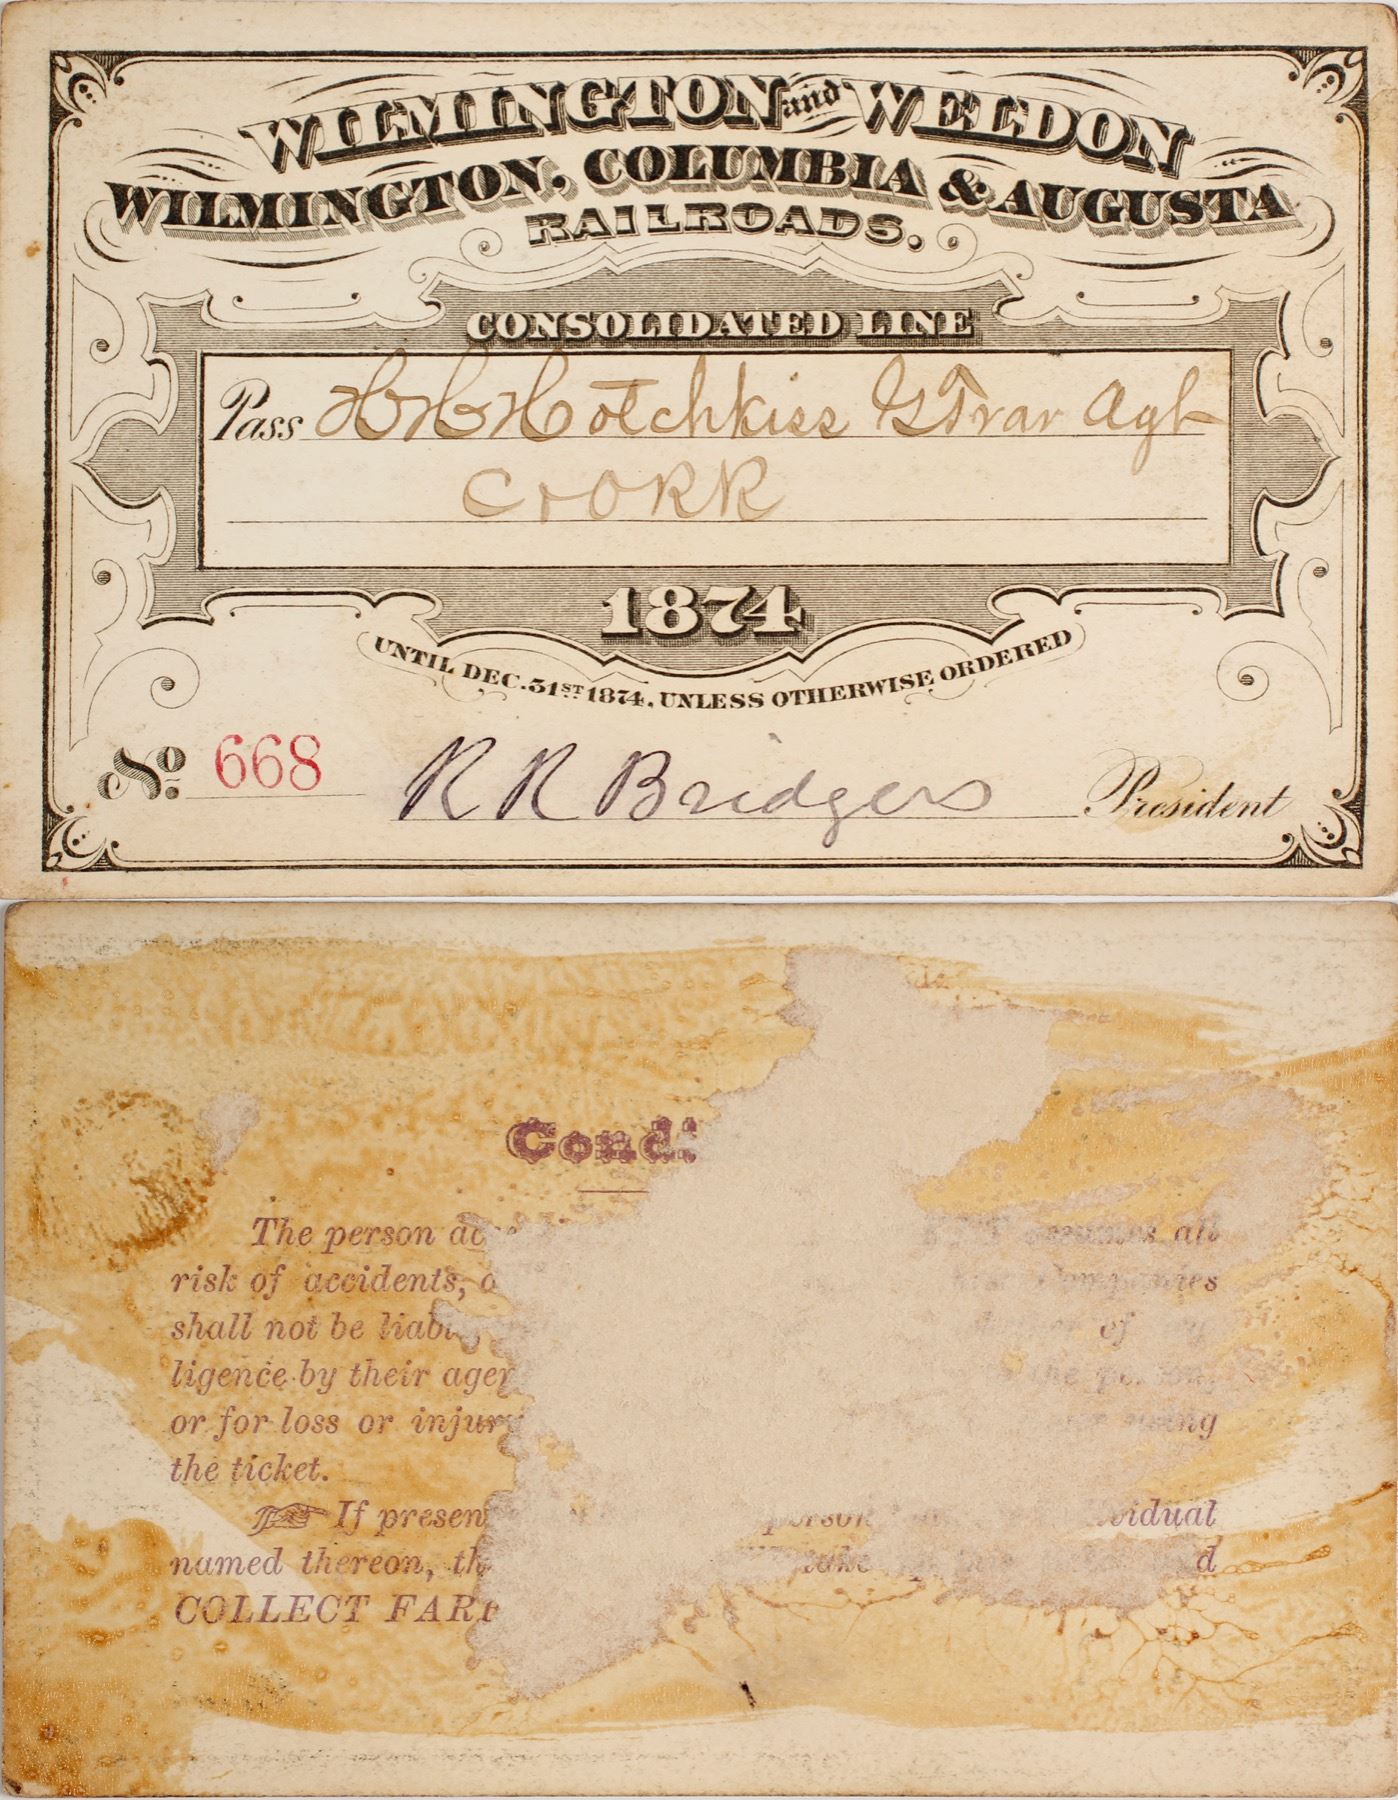 WILMINGTON and WELDON
WILMINGTON, COLUMBIA & AUGUSTA
RAILROADS.
CONSOLIDATED LINE
Pass H H Hotchkiss G Trav Agt
C & O R R
1874
UNTIL DEC. 31ST 1874, UNLESS OTHERWISE ORDERED
No. 668 R R Bridgers President
Cond
The person assumes all
risk of accidents, Companies
shall not be liab of
ligence by their agen the person,
or for loss or injury using
the ticket.
If presen person vidual
named thereon, th take d
COLLECT FARE